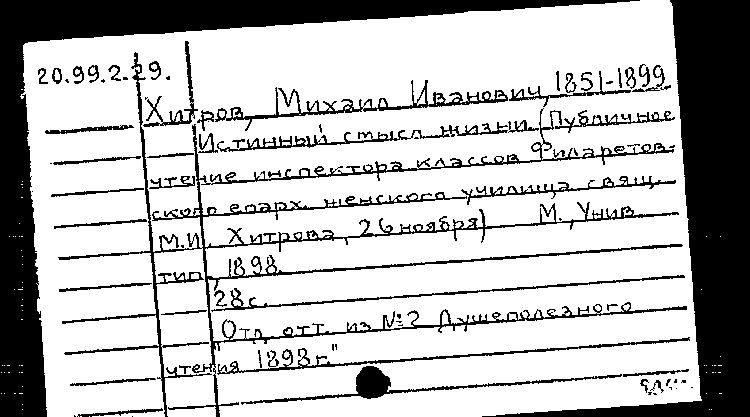 20.99.2.29.
Хитров, Михаил Иванович, 1851-1899
Истинный смысл жизни. (Публичное
чтение инспектора классов Филаретов-
ского епарх. женского училища свящ.
М.И. Хитрова, 26 ноября) М., Унив.
тип., 1898.
28 с.
"Отд. отт. из №2 Душеполезного
чтения 1898 г."